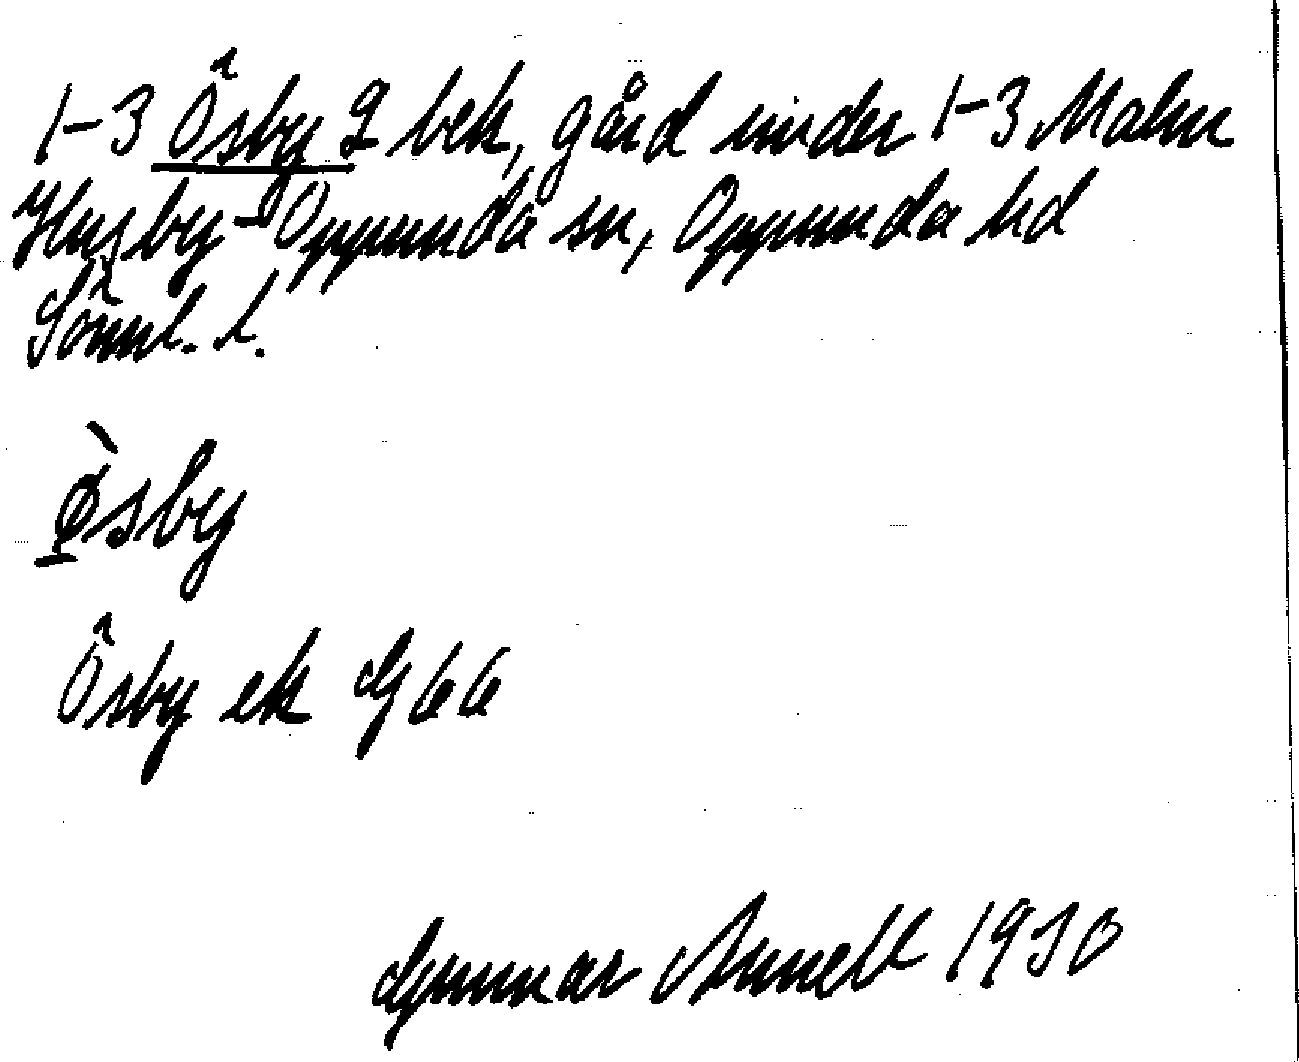 1-3 Ösby 2 bek, gård under 1-3 Malm
Husby-Oppunda sn, Oppunda hd
Söml. l.
Ösby
Ösby ek G 66
Gunnar Annell 1930